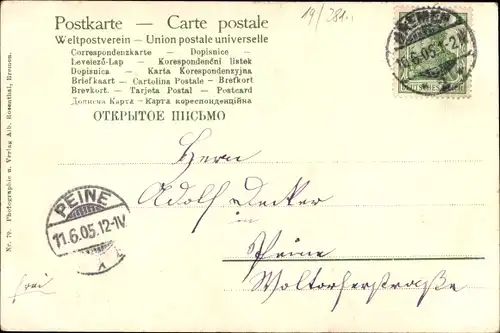 19/381..
Postkarte — Carte postale
Weltpostverein – Union postale universelle
Correspondenzkarte – Dopisnice –
Levelező-Lap – Korespondenční lístek
Dopisnica – Karta Korespondencyjna
Briefkaart – Cartolina Postale – Brefkort
Brevkort. – Tarjeta Postal – Postcard
Дописна Карта – Карта кореспонденційна
ОТКРЫТОЕ ПИСЬМО
BREMEN
10.6.05.1-2N
DEUTSCHES REICH
Herrn
Adolf Decker
in
Peine
Woltorferstraße
PEINE
11.6.05.12-1V
frei
Nr. 79. Photographie u. Verlag Alb. Rosenthal, Bremen.